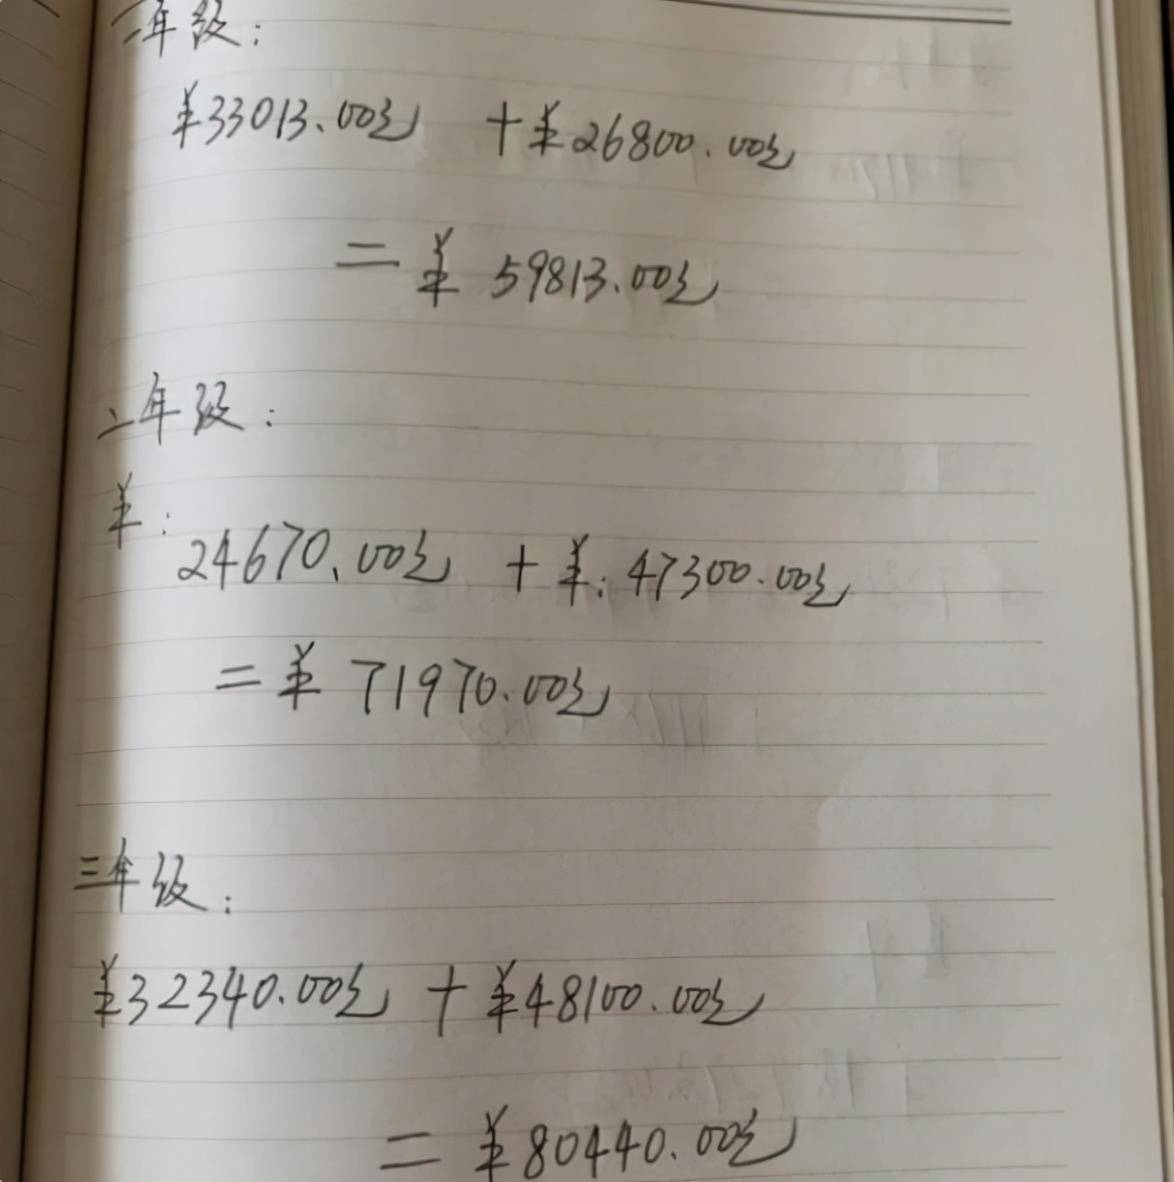 一年级：
¥33013.00元 +¥26800.00元
=¥ 59813.00元
二年级：
¥：
24670.00元 +¥：47300.00元
=¥ 71970.00元
三年级：
¥32340.00元 +¥48100.00元
=¥80440.00元